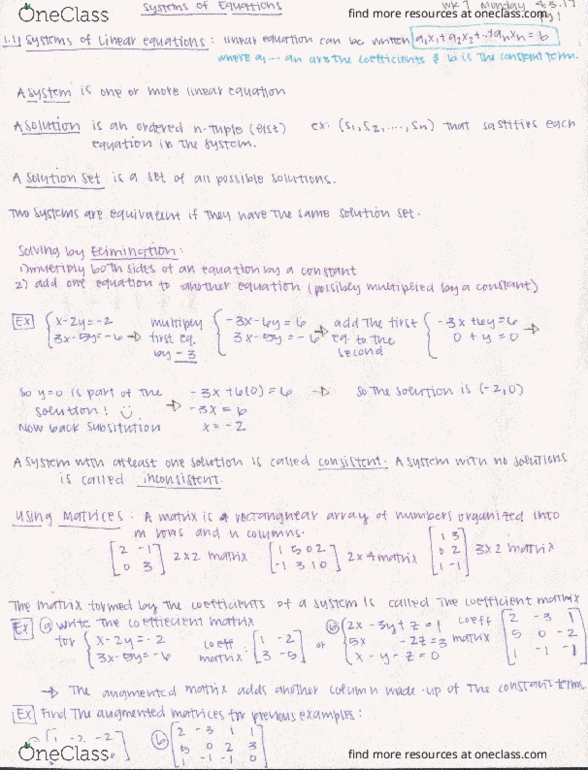 OneClass
Systems of Equations
find more resources at oneclass.com
WK 1 Monday
1.1) Systems of Linear equations : linear equation can be written a₁x₁+a₂x₂+...+aₙxₙ = b
where a₁ ... an are the coefficients & b is the constant term.
A system is one or more linear equation
A solution is an ordered n-tuple (list) ex: (s₁, s₂, ..., sₙ) that sastifies each
equation in the system.
A solution set is a set of all possible solutions.
Two systems are equivalent if they have the same solution set.
Solving by Elimination:
1) multiply both sides of an equation by a constant
2) add one equation to another equation (possibly multiplied by a constant)
Ex { x-2y=-2 multiply { -3x-6y=6 → add the first { -3x+6y=6 →
3x-5y=-6 → first eq. 3x-5y=-6 eq. to the 0+y=0
by -3 second
So y=0 is part of the -3x+6(0)=6 → so the solution is (-2,0)
solution! → -3x=6
Now back substitution x=-2
A system with atleast one solution is called consistent. A system with no solutions
is called inconsistent.
Using Matrices : A matrix is a rectangular array of numbers organized into
m rows and n columns.
[2 -1 [1 5 0 2 [1 3
0 3] 2x2 matrix -1 3 1 0] 2x4 matrix 0 2 3x2 matrix
1 -1]
The matrix formed by the coefficients of a system is called the coefficient matrix
Ex a) write the coefficient matrix b) { 2x-3y+z=1 coeff [2 -3 1
for { x-2y=-2 coeff [1 -2 or 5x -2z=3 matrix 5 0 -2
3x-5y=-6 matrix: 3 -5] x-y-z=0 1 -1 -1]
→ The augmented matrix adds another column made up of the constant terms.
Ex Find the augmented matrices for previous examples:
[1 -2 -2 b) [2 -3 1 1
5 0 2 3
1 -1 -1 0]
OneClass
find more resources at oneclass.com